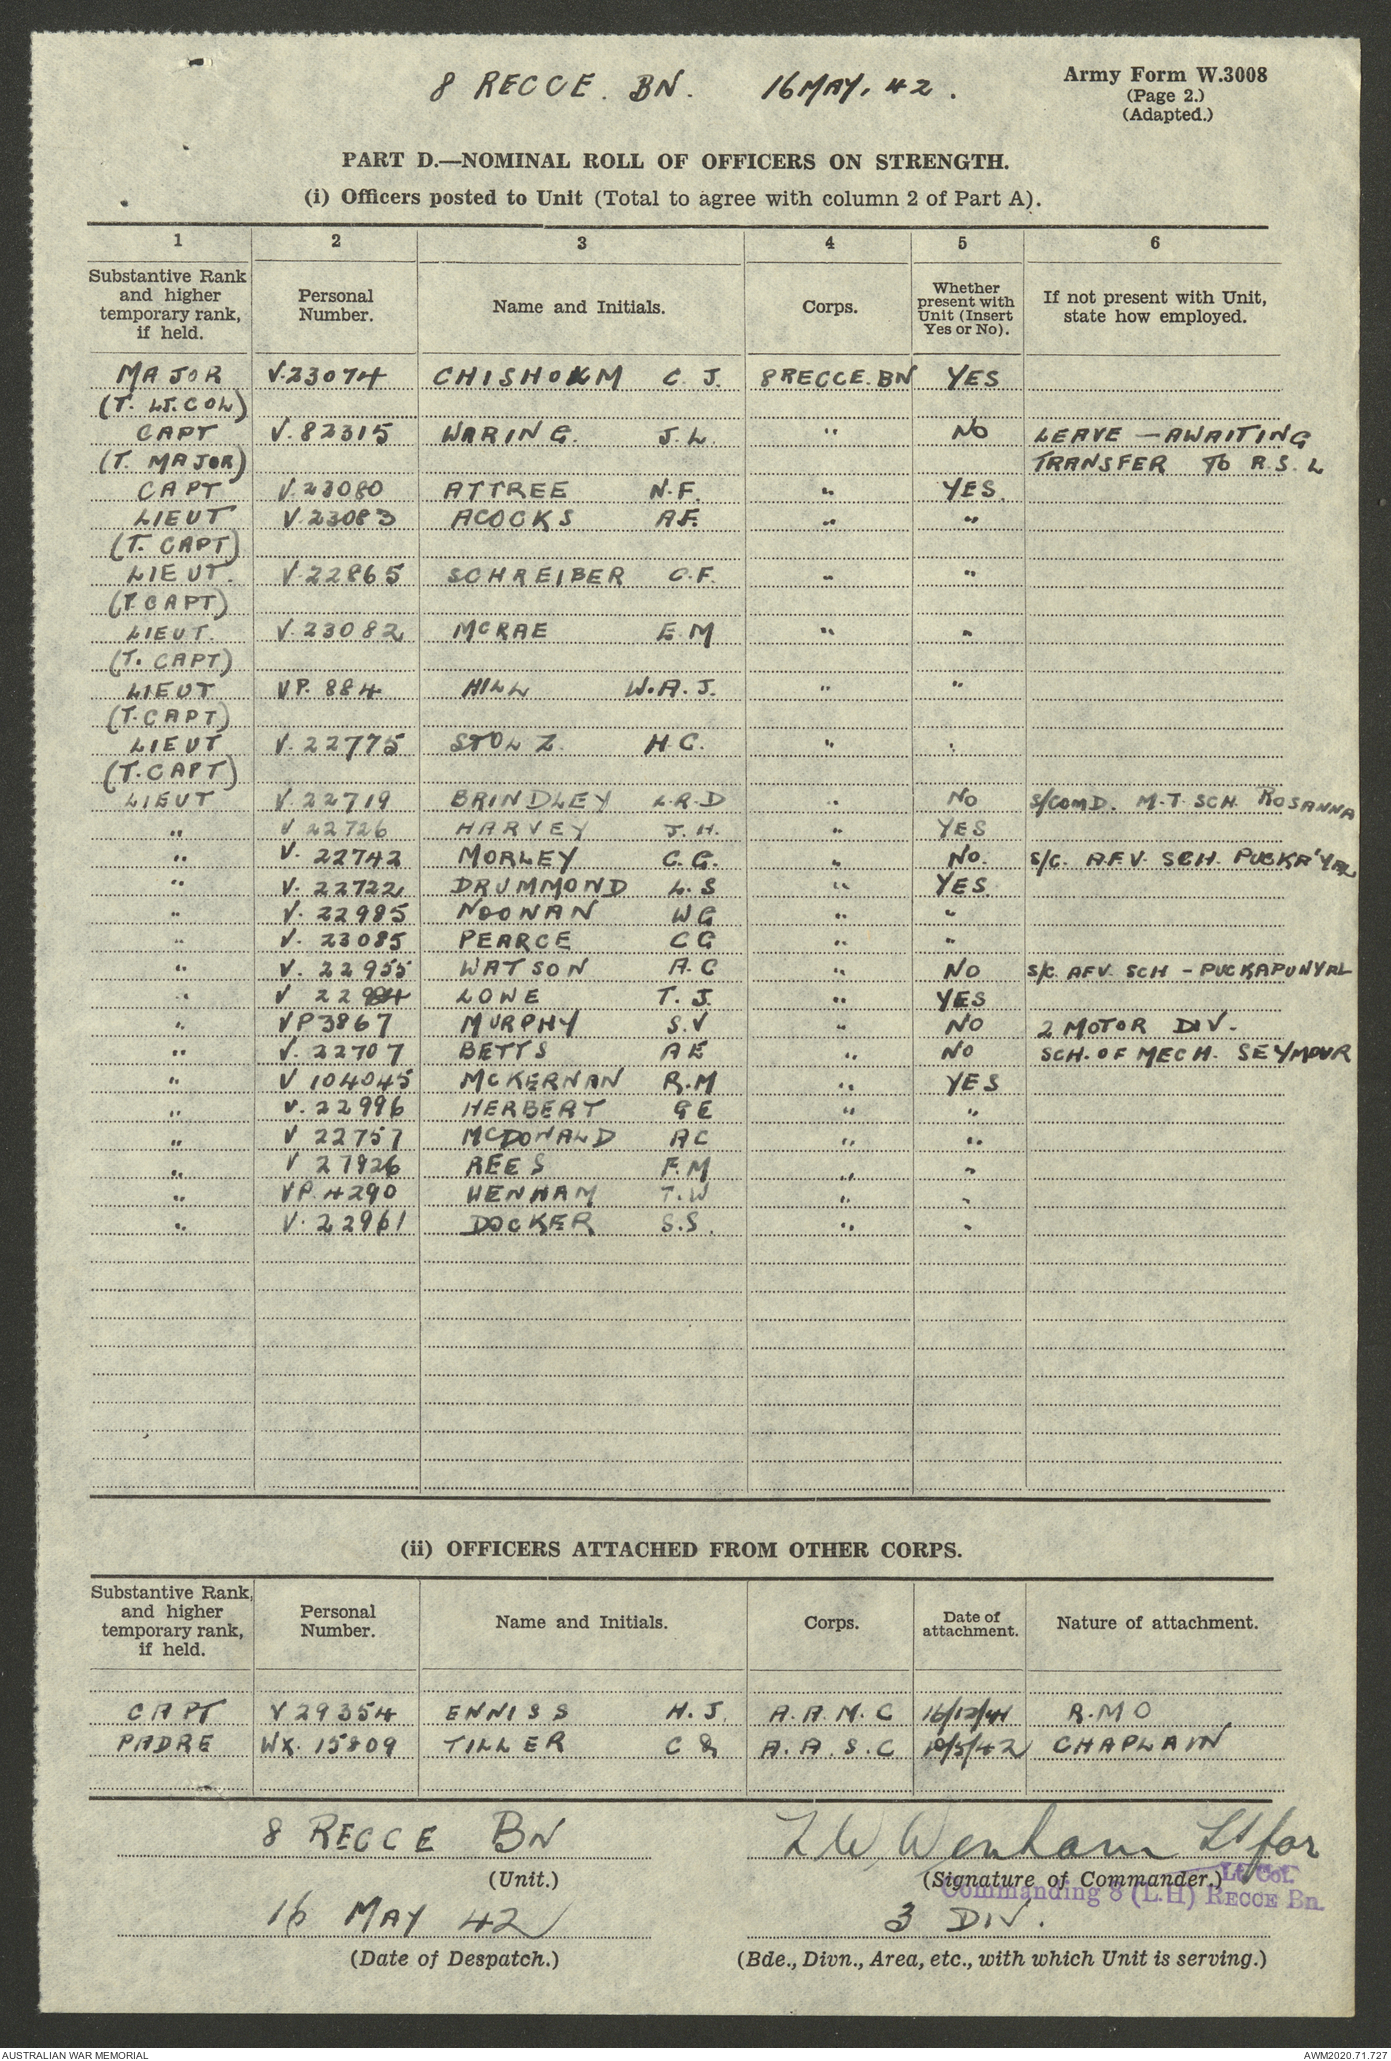 8 RECCE. BN. 16 MAY. 42.
Army Form W.3008
(Page 2.)
(Adapted.)
PART D.—NOMINAL ROLL OF OFFICERS ON STRENGTH.
(i) Officers posted to Unit (Total to agree with column 2 of Part A).
1 2 3 4 5 6
Substantive Rank and higher temporary rank, if held. Personal Number. Name and Initials. Corps. Whether present with Unit (Insert Yes or No). If not present with Unit, state how employed.
MAJOR V.23074 CHISHOLM C. J. 8 RECCE. BN YES
(T. LT. COL)
CAPT V. 82315 WARING. J. L. " NO LEAVE — AWAITING
(T. MAJOR) TRANSFER TO R.S.L
CAPT V.23080 ATTREE N.F. " YES.
LIEUT V.23083 ACOCKS A.F. " "
(T. CAPT)
LIEUT. V.22865 SCHREIBER C.F. " "
(T. CAPT)
LIEUT. V.23082 McRAE E.M " "
(T. CAPT)
LIEUT VP. 884 HILL W.A.J. " "
(T. CAPT)
LIEUT V.22775 STOLZ. H.C. " "
(T. CAPT)
LIEUT V.22719 BRINDLEY L.R.D " NO S/COMD. M.T. SCH ROSANNA
" V 22726 HARVEY J.H. " YES
" V. 22742 MORLEY C.G. " NO. S/C. A.F.V. SCH. PUCKA'YAL
" V. 22722 DRUMMOND L.S " YES.
" V. 22985 NOONAN WG " "
" V. 23085 PEARCE CG " "
" V. 22955 WATSON A.C " NO S/C. AFV. SCH - PUCKAPUNYAL
" V 22984 LOWE T. J. " YES
" VP3867 MURPHY S.V " NO 2 MOTOR DIV.
" V. 22707 BETTS AE " NO SCH. OF MECH. SEYMOUR
" V 104045 McKERNAN R.M " YES
" V. 22996 HERBERT GE " "
" V 22757 McDONALD AC " "
" V 27926 REES F.M " "
" VP. 4290 WENHAM T.W " "
" V. 22961 DOCKER S.S. " "
(ii) OFFICERS ATTACHED FROM OTHER CORPS.
Substantive Rank, and higher temporary rank, if held. Personal Number. Name and Initials. Corps. Date of attachment. Nature of attachment.
CAPT V 29354 ENNISS H.J. A.A.M.C 16/12/41 R.M O
PADRE WX. 15809 TILLER C A.A.S.C 10/5/42 CHAPLAIN
8 RECCE BN
(Unit.)
Wenham Lt for
(Signature of Commander.)
Lt. Col.
Commanding 8 (L.H) RECCE Bn.
16 MAY 42
(Date of Despatch.)
3 DIV.
(Bde., Divn., Area, etc., with which Unit is serving.)
AUSTRALIAN WAR MEMORIAL
AWM2020.71.727